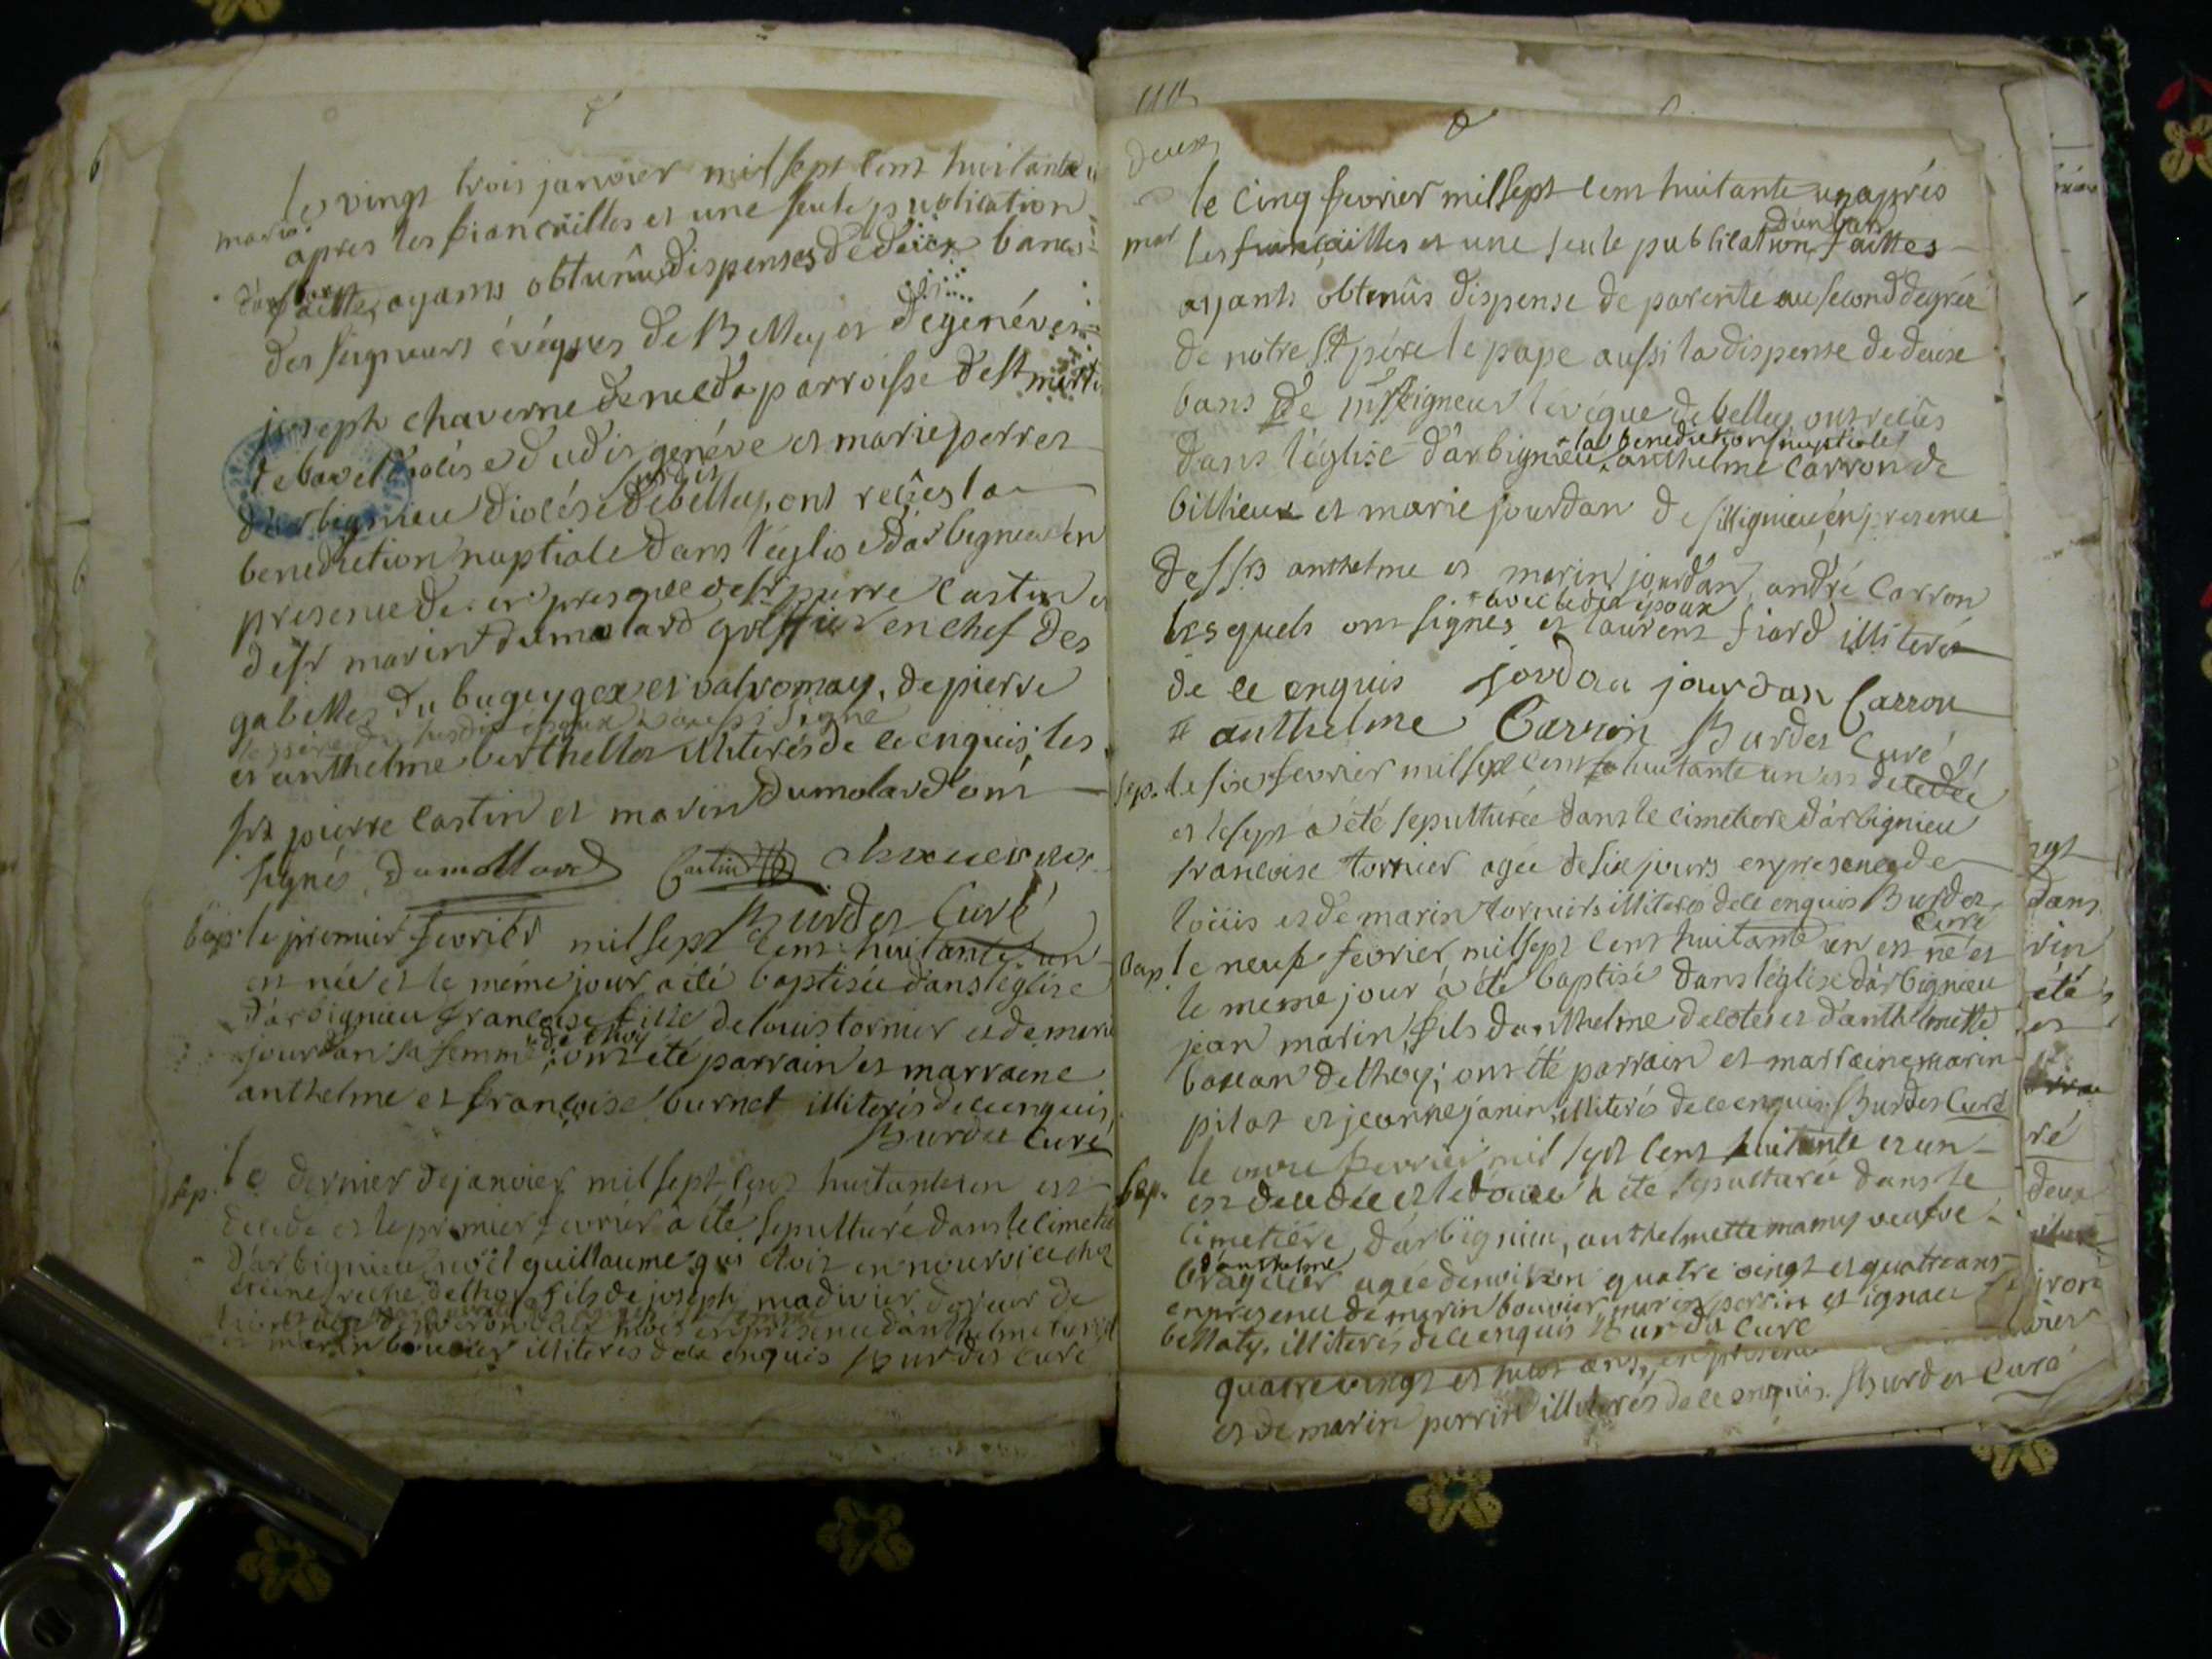 le vingt trois janvier mil sept cent huitante
mari.
apres les fiançailles et une seule publication
faitte, ayants obtenûs dispenses de deux bancs
des seigneurs évéques de Belley et de genéve
joseph chaverne de parroisse de st
diocése dudit genéve et marie perret
d'arbignieu diocése susdit de belley, ont reçûes la
benediction nuptiale dans l'eglise d'arbignieu en
presence de et presence de sr pierre castin et
de sr marin dumolard greffier en chef des
gabelles du bugey gex et valromay, de pierre
susdit époux aussi signé
et anthelme berthellet illiterés de ce enquis, les
srs pierre castin et marin dumolard ont
signés. Dumollard Castin
Burdet Curé
bap. le premier fevrier mil sept cent huitante un
est née et le méme jour a été baptisée dans l'église
d'arbignieu françoise fille de louis tornier et de marie
jourdan sa femme de thoy ont été parrain et marraine
anthelme et françoise burnet illiterés de ce enquis
Burdet Curé
sep. le dernier de janvier mil sept cent huitante un est
decedé et le premier fevrier a été sepulturé dans le cimetie
d'arbignieu noël guillaume qui étoit en nourrice chez
de thoy fils de joseph doreur de
en presence d'anthelme
et marin bouvier illiterés de ce enquis Burdet Curé
deux
le cinq fevrier mil sept cent huitante un aprés
mar les fiançailles et une seule publication d'un ban faittes
ayants obtenûs dispense de parenté au second degrée
de notre St pére le pape aussi la dispense de deux
bans de mgr seigneur l'evéque de belley ont reçûs
dans l'église d'arbignieu la benediction nuptiale anthelme carron de
billieux et marie jourdan de sillignieu, en presence
de srs anthelme et marin jourdan, andré carron
lesquels ont signés avec ledit époux et laurent fiard illiteré
de ce enquis jordan jourdan Carron
# anthelme Carron Burdet Curé
sep. le six fevrier mil sept cent huitante un est decedée
et le sept a été sepulturée dans le cimetiere d'arbignieu
françoise tornier agée de six jours en presence de
loüis et de marin torniers illiterés de ce enquis Burdet
Curé
bap. le neuf fevrier mil sept cent huitante un est né et
le meme jour a été baptisé dans l'église d'arbignieu
jean marin, fils d'anthelme et d'anthelmette
de thoy; ont été parrain et marraine marin
pilat et jeanne janin illiterés de ce enquis Burdet Curé
le onze fevrier mil sept cent huitante et un
sep. est decedée et le douze a été sepulturée dans le
cimetiére d'arbignieu, anthelmette mamy veufve
d'anthelme
agée d'environ quatre vingt et quatre ans
en presence de marin bouvier marin perrin et ignace
bellaty, illiterés de ce enquis Burdet Curé
quatre vingt et huit ans, en presence
et de marin perrin illiterés de ce enquis. Burdet Curé
dans
rin
été
et
ré
deux